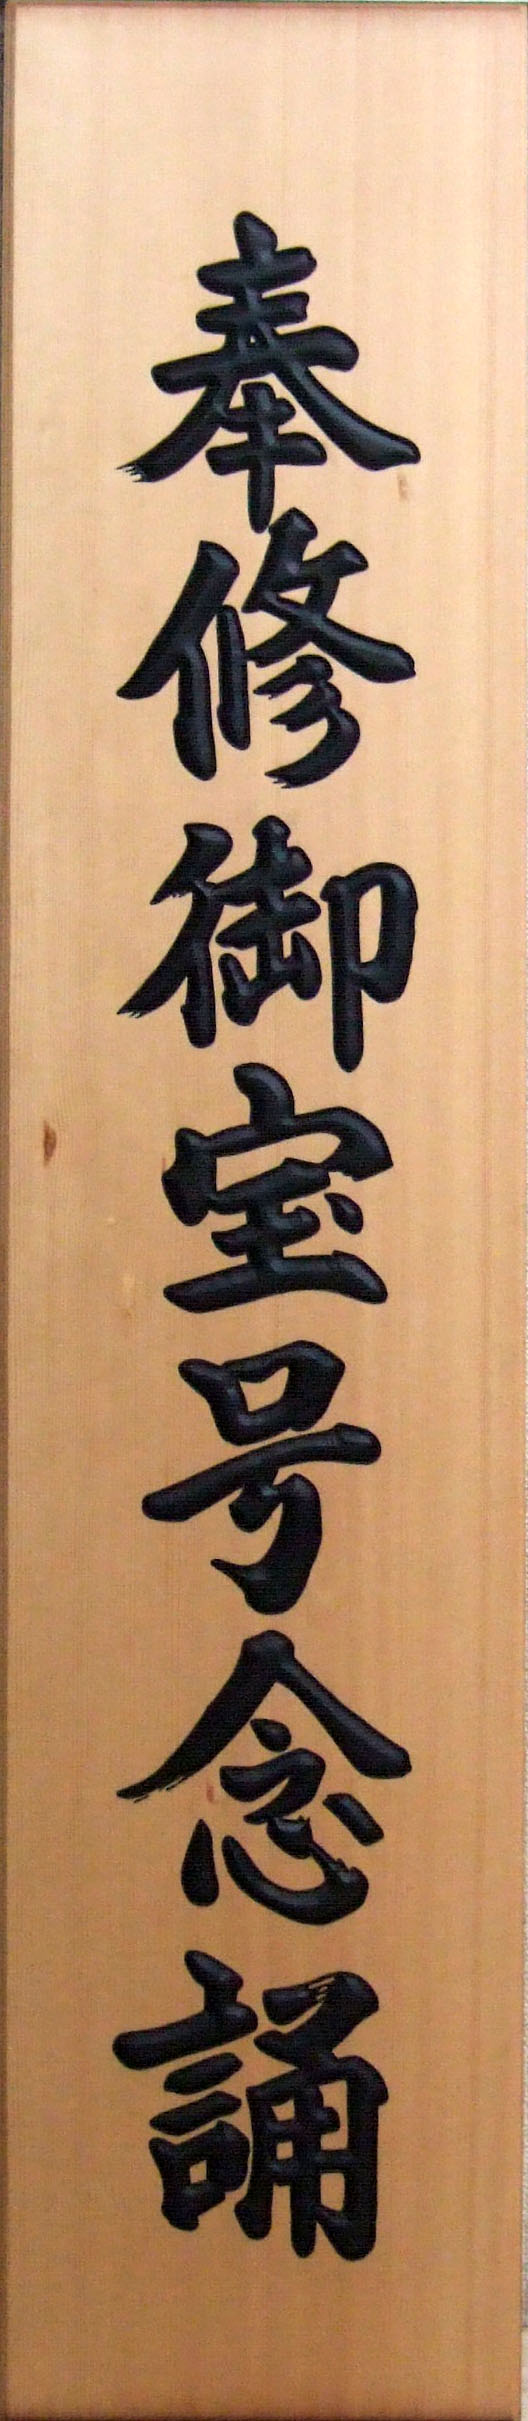 奉修御宝号念誦